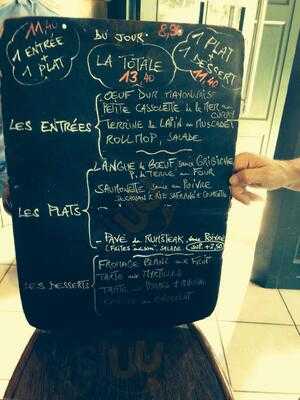 11,40
1 ENTRÉE
+
1 PLAT
DU JOUR
8,90
LA TOTALE
13,40
1 PLAT
+
1 DESSERT
11,40
LES ENTRÉES
OEUF DUR MAYONNAISE
PETITE CASSOLETTE DE LA MER AU CURRY
TERRINE DE LAPIN AU MUSCADET
ROLLMOP, SALADE
LES PLATS
LANGUE DE BOEUF SAUCE GRIBICHE
P. DE TERRE AU FOUR
SAUMONETTE SAUCE AU POIVRE
RIZ SAFRANÉ
PAVÉ DE RUMSTEAK, SAUCE POIVRE
(FRITES MAISON, SALADE) SUP. +2,50
LES DESSERTS
FROMAGE BLANC AUX FRUIT
TARTE AUX MYRTILLES
TARTE AUX POIRES
AU CHOCOLAT